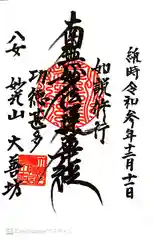 維時令和参年十二月十一日
如説修行
南無妙法蓮華経
功徳甚多
八女 妙光山 大善坊